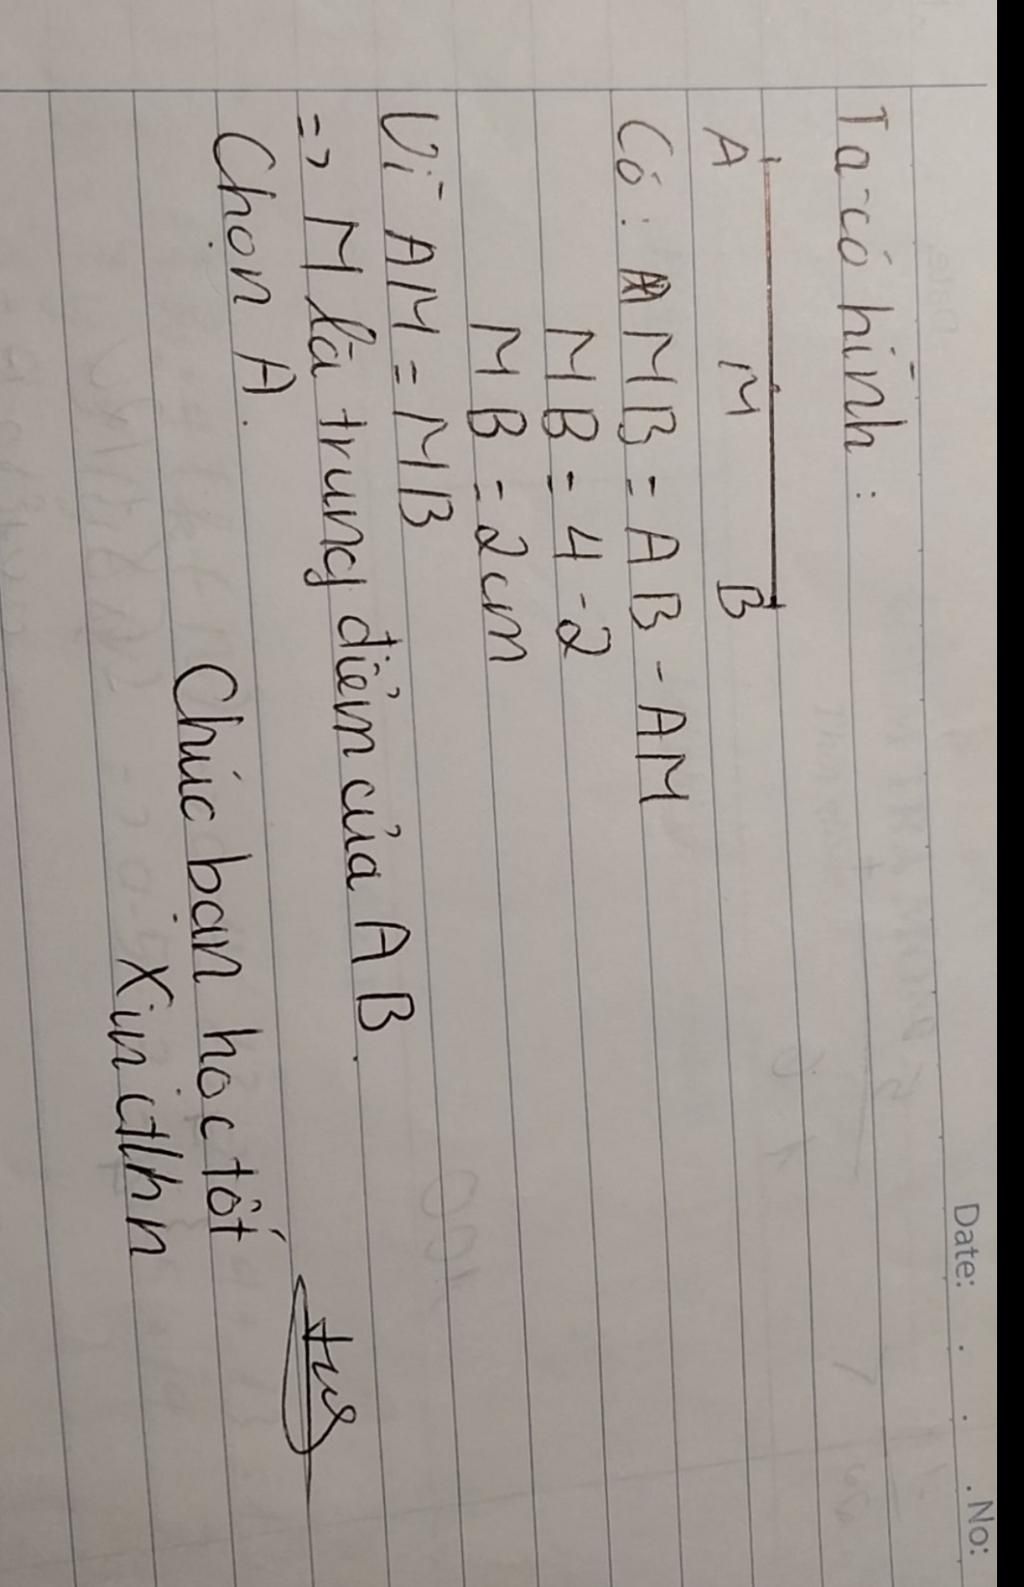 Date: . . . No:
Ta có hình:
A M B
Có: MB = AB - AM
MB = 4 - 2
MB = 2cm
Vì AM = MB
=> M là trung điểm của AB.
Chọn A.
Chúc bạn học tốt
Xin ctlhn